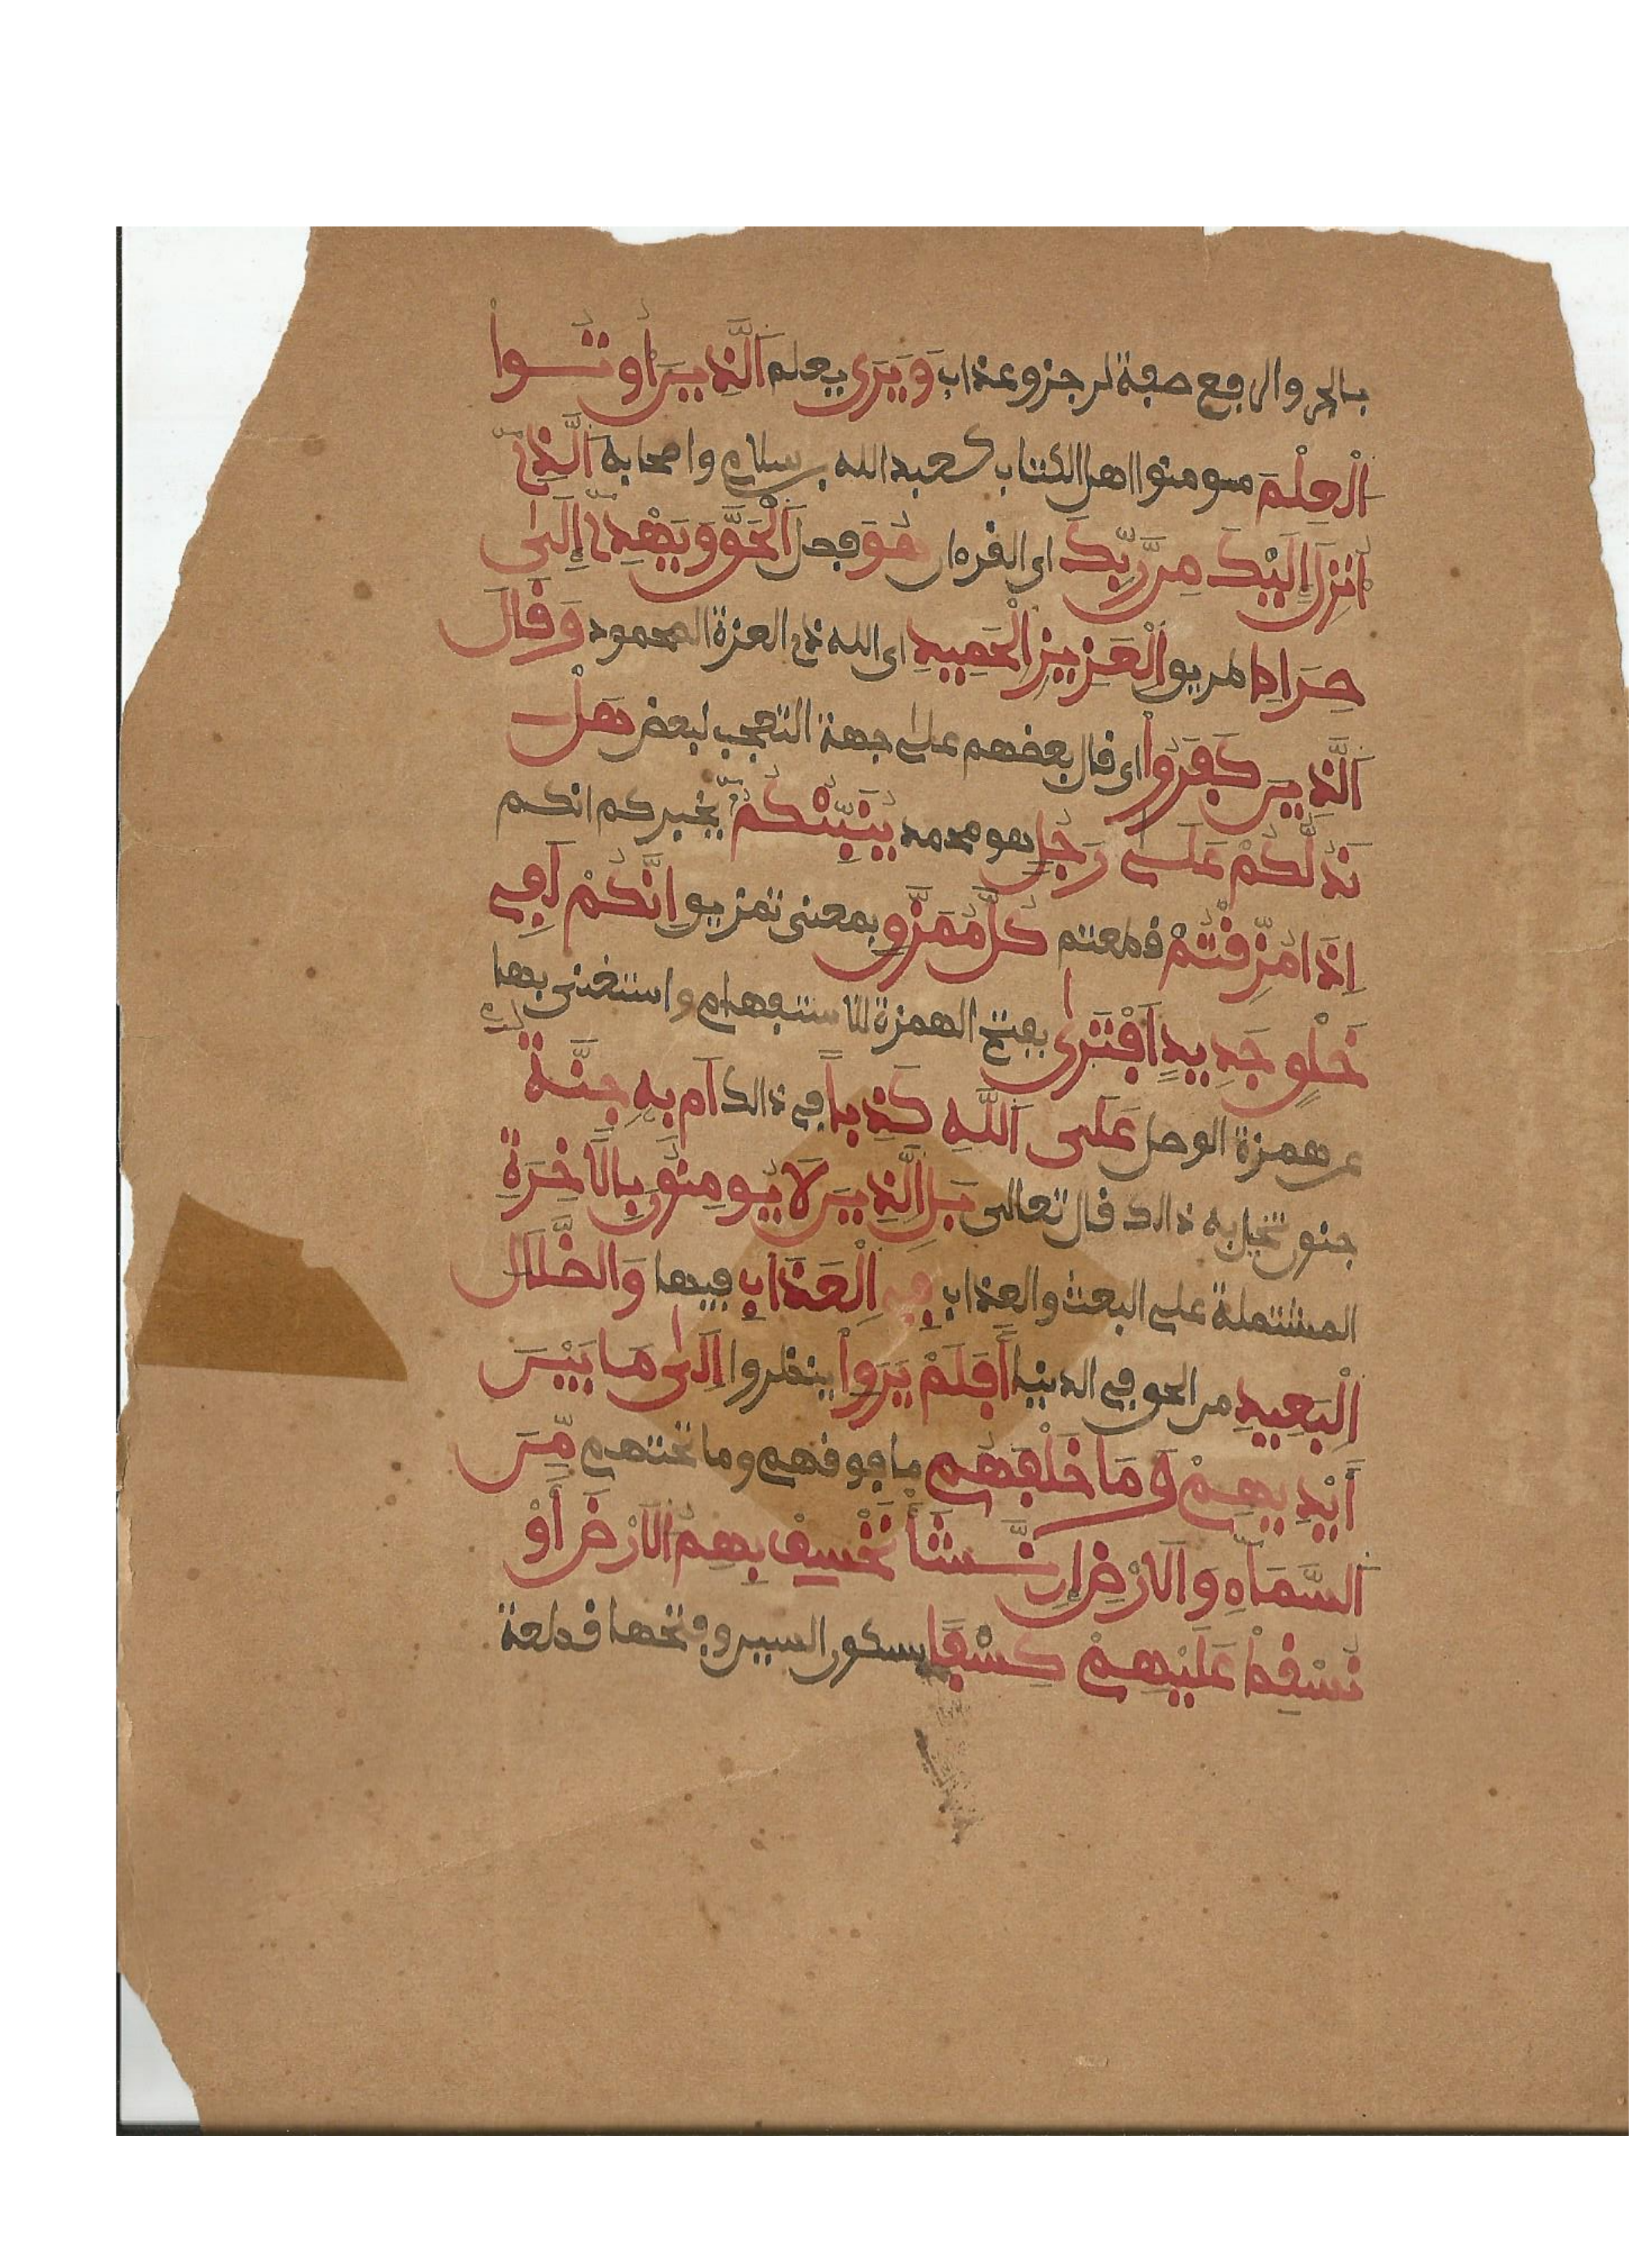 بالجر والرفع صفة لرجز وعذاب وَيَرَى يعلم اَلَّذِينَ أُوتُوا
اَلْعِلْمَ مومنوا اهل الكتاب كعبد الله بن سلام واصحابه اَلَّذِے
أُنزِلَ إِلَيْكَ مِن رَّبِّكَ اى القرءان هُوَ فصل اَلْحَقَّ وَيَهْدِے إِلَىٰ
صِرَاطِ طريق اِلْعَزِيزِ اِلْحَمِيدِ اى الله ذے العزة المحمود وَقَالَ
اَلَّذِينَ كَفَرُوا اى قال بعضهم على جهة التعجب لبعض هَلْ
نَدُلُّكُمْ عَلَىٰ رَجُلٍ هو محمد يُنَبِّئُكُمُۥ يخبركم انكم
إِذَا مُزِّقْتُمْ قطعتم كُلَّ مُمَزَّقٍ بمعنى تمزيق اِنَّكُمْ لَفِے
خَلْقٍ جَدِيدٍ اَفْتَرَىٰ بفتح الهمزة للاستفهام واستغنى بها
عن همزة الوصل عَلَى اَللَّهِ كَذِباً في ذالك اَم بِهِۦ جِنَّةُۢ
جنون تخيل به ذالك قال تعالى بَلِ اِلَّذِينَ لَا يُومِنُونَ بِالَاخِرَةِ
المشتملة على البعث والعذاب فِے اِلْعَذَابِ فيها وَالضَّلَٰلِ
اِلْبَعِيدِ من الحق في الدنيا أَفَلَمْ يَرَوِاْ ينظروا اِلَىٰ مَا بَيْنَ
أَيْدِيهِمْ وَمَا خَلْفَهُم ما فوقهم وما تحتهم مِّنَ
اَلسَّمَآءِ وَالَارْضِ إِن نَّشَأْ نَخْسِفْ بِهِمُ اُلَارْضَ أَوْ
نُسْقِطْ عَلَيْهِمْ كِسْفًا بسكون السين وفتحها قطعة